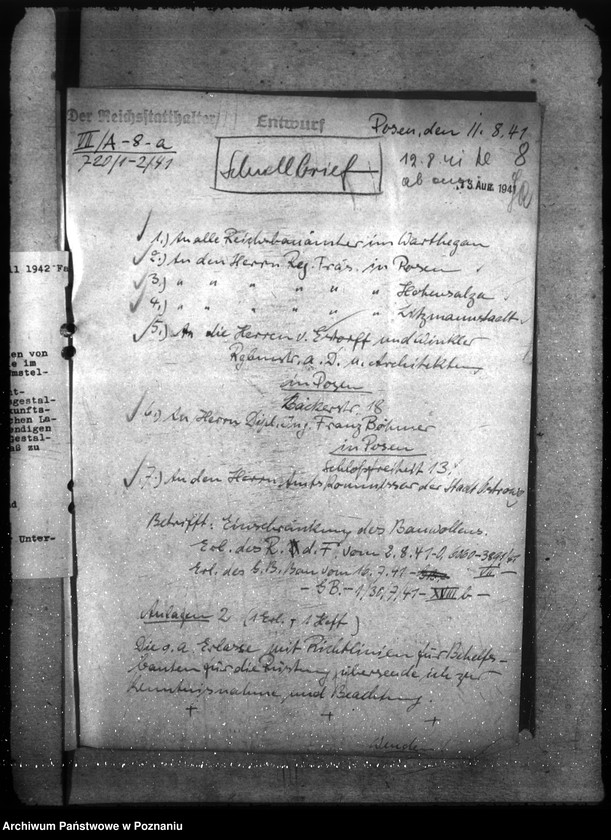 Der Reichsstatthalter
Entwurf
Posen, den 11.8.41
VII/A-8-a
720/1-2/41
Schnellbrief
12.8.41
8
ab
13. Aug. 1941
1.) An alle Reichsbauämter im Warthegau
2.) An den Herrn Reg. Präs. in Posen
3.) " " " " " " Hohensalza
4.) " " " " " " Litzmannstadt
5.) An die Herren v. Estorff und Winkler
Rgbmstr. a. D. u. Architekten
in Posen
Bäckerstr. 18
6.) An Herrn Dipl. Ing. Franz Böhmer
in Posen
Schloßfreiheit 13.
7.) An den Herrn Amtskommissar der Stadt Ostrowo
Betrifft: Einschränkung des Bauvollens.
Erl. des R. d. F. vom 2.8.41-O.
Erl. des G.B. Bau vom 16.7.41-
VII-
- GB.-1/30.7.41-XVIII b-
Anlagen 2 (1 Erl. + 1 Heft)
Die o.a. Erlasse mit Richtlinien für Behelfs-
bauten für die Rüstung übersende ich zur
Kenntnisnahme und Beachtung.
+ + +
l 1942 Fa
en von
e im
mstel-
t-
gestal-
kunfts-
chen La-
endigen
Gestal-
aß zu
d
Unter-
Archiwum Państwowe w Poznaniu